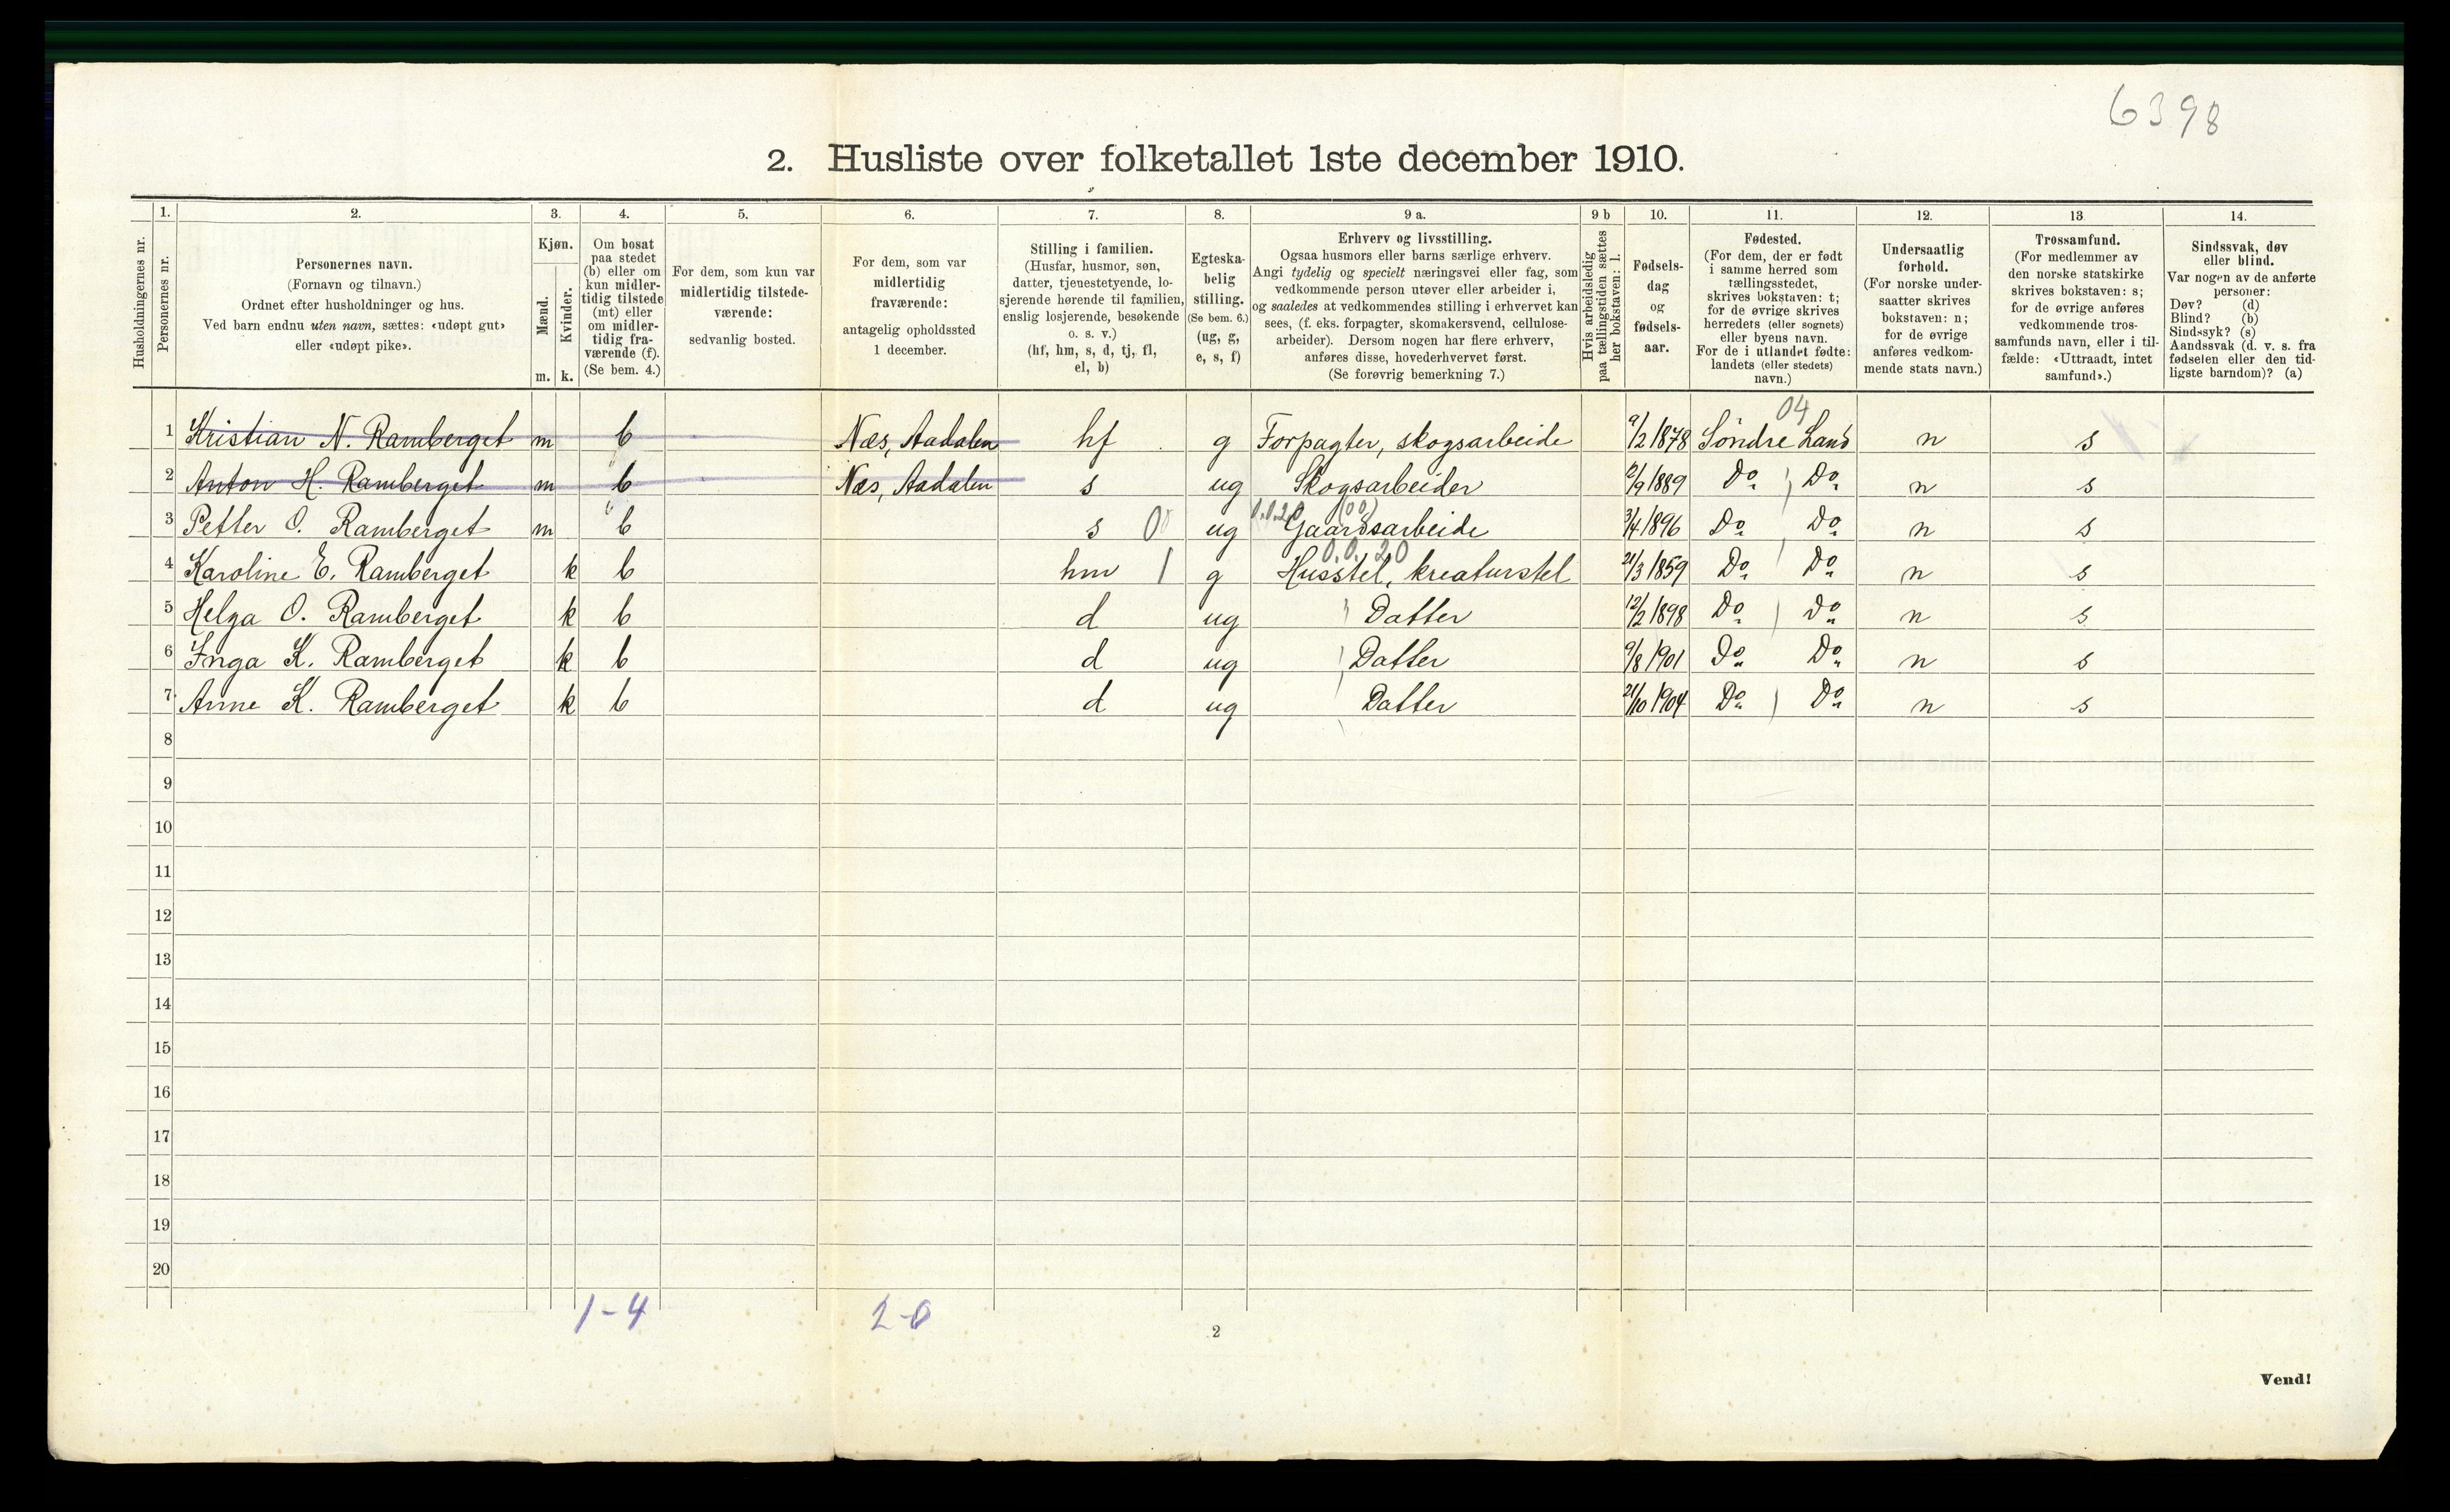 6398
2. Husliste over folketallet 1ste december 1910.
Husholdningernes nr.
1.
Personernes nr.
2.
Personernes navn.
(Fornavn og tilnavn.)
Ordnet efter husholdninger og hus.
Ved barn endnu uten navn, sættes: «udøpt gut»
eller «udøpt pike».
3.
Kjøn.
Mænd.
Kvinder.
m. k.
4.
Om bosat
paa stedet
(b) eller om
kun midler-
tidig tilstede
(mt) eller
om midler-
tidig fra-
værende (f).
(Se bem. 4.)
5.
For dem, som kun var
midlertidig tilstede-
værende:
sedvanlig bosted.
6.
For dem, som var
midlertidig
fraværende:
antagelig opholdssted
1 december.
7.
Stilling i familien.
(Husfar, husmor, søn,
datter, tjenestetyende, lo-
sjerende hørende til familien,
enslig losjerende, besøkende
o. s. v.)
(hf, hm, s, d, tj, fl,
el, b)
8.
Egteska-
belig
stilling.
(Se bem. 6.)
(ug, g,
e, s, f)
9 a.
Erhverv og livsstilling.
Ogsaa husmors eller barns særlige erhverv.
Angi tydelig og specielt næringsvei eller fag, som
vedkommende person utøver eller arbeider i,
og saaledes at vedkommendes stilling i erhvervet kan
sees, (f. eks. forpagter, skomakersvend, cellulose-
arbeider). Dersom nogen har flere erhverv,
anføres disse, hovederhvervet først.
(Se forøvrig bemerkning 7.)
9 b
Hvis arbeidsledig
paa tællingstiden sættes
her bokstaven: l.
10.
Fødsels-
dag
og
fødsels-
aar.
11.
Fødested.
(For dem, der er født
i samme herred som
tællingsstedet,
skrives bokstaven: t;
for de øvrige skrives
herredets (eller sognets)
eller byens navn.
For de i utlandet fødte:
landets (eller stedets)
navn.)
12.
Undersaatlig
forhold.
(For norske under-
saatter skrives
bokstaven: n;
for de øvrige
anføres vedkom-
mende stats navn.)
13
Trossamfund.
(For medlemmer av
den norske statskirke
skrives bokstaven: s;
for de øvrige anføres
vedkommende tros-
samfunds navn, eller i til-
fælde: «Uttraadt, intet
samfund».)
14.
Sindssvak, døv
eller blind.
Var nogen av de anførte
personer:
Døv? (d)
Blind? (b)
Sindssyk? (s)
Aandssvak (d. v. s. fra
fødselen eller den tid-
ligste barndom)? (a)
04
1 Kristian N. Ramberget m b Næs, Aadalen hf g Forpagter, skogsarbeide 9/2 1878 Söndre Land n s
2 Anton H. Ramberget m b Næs, Aadalen s ug Skogsarbeider 2/9 1889 Do. Do. n s
0.0.20 (00)
3 Petter O. Ramberget m b s 0 ug Gaardsarbeide 3/4 1896 Do. Do. n s
0.0.20
4 Karoline E. Ramberget k b hm 1 g Husstel, kreaturstel 21/3 1859 Do. Do. n s
5 Helga O. Ramberget k b d ug Datter 12/2 1898 Do. Do. n s
6 Inga K. Ramberget k b d ug Datter 9/8 1901 Do. Do. n s
7 Anne K. Ramberget k b d ug Datter 21/10 1904 Do. Do. n s
8
9
10
11
12
13
14
15
16
17
18
19
20
1-4 2-0
2
Vend!